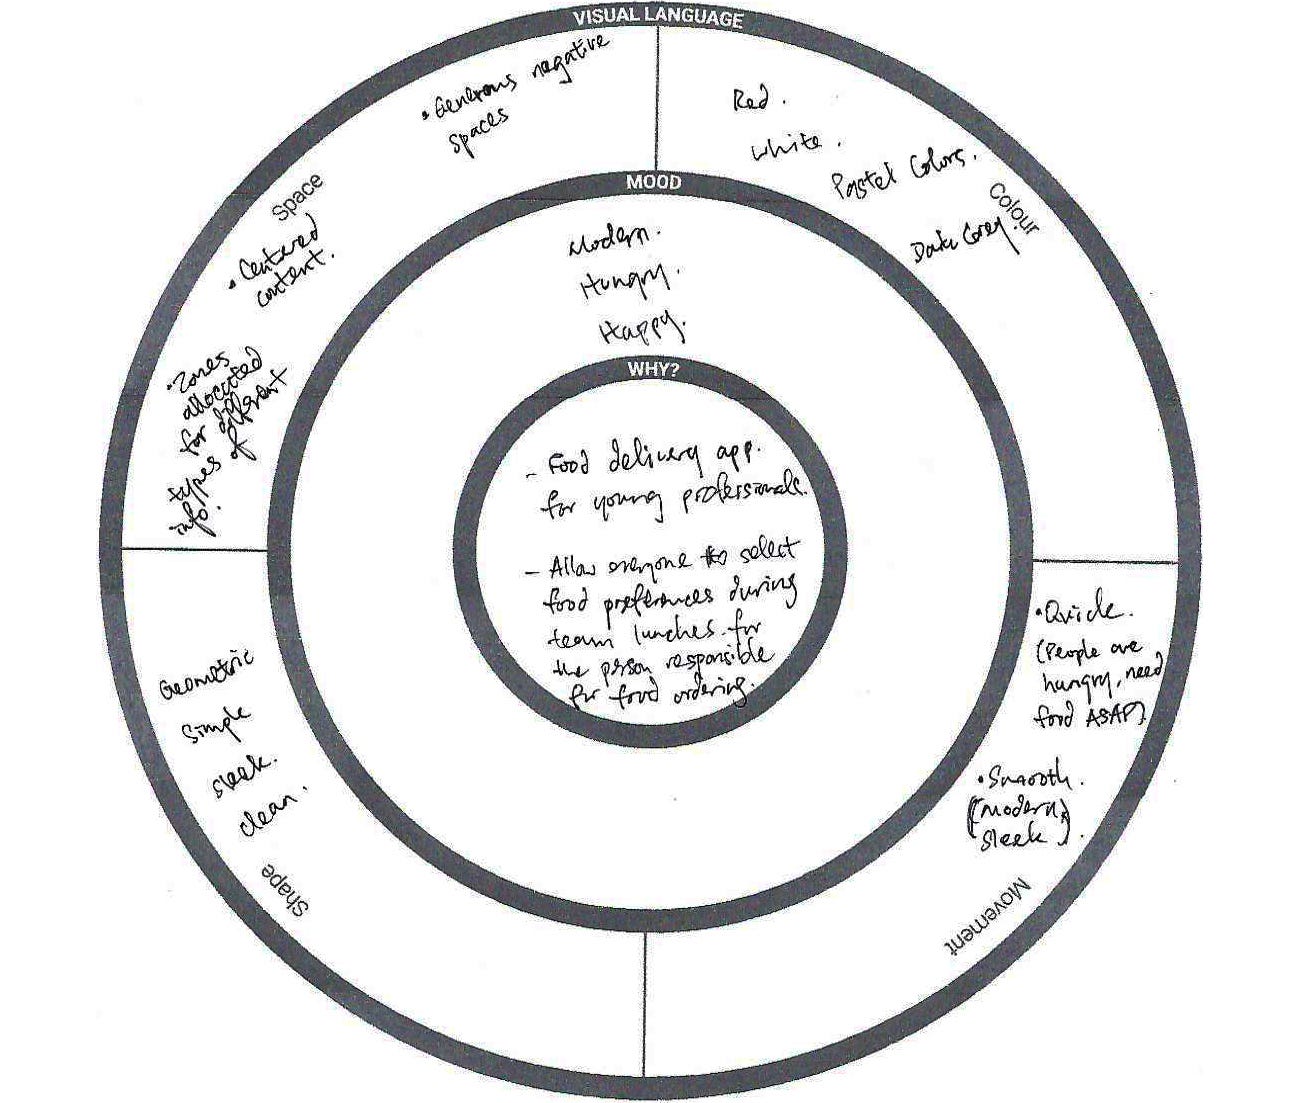 VISUAL LANGUAGE
• Generous negative
spaces
Space
• Centered
content.
• Zones
allocated
for different
types of
info.
Red.
White.
Pastel Colors.
Dark Grey
Colour
MOOD
Modern.
Hungry.
Happy.
WHY?
- Food delivery app.
for young professionals.
- Allow everyone to select
food preferences during
team lunches for
the person responsible
for food ordering.
Geometric
Simple
Sleek.
clean.
Shape
• Quick.
(People are
hungry, need
food ASAP)
• Smooth.
(Modern,
sleek).
Movement